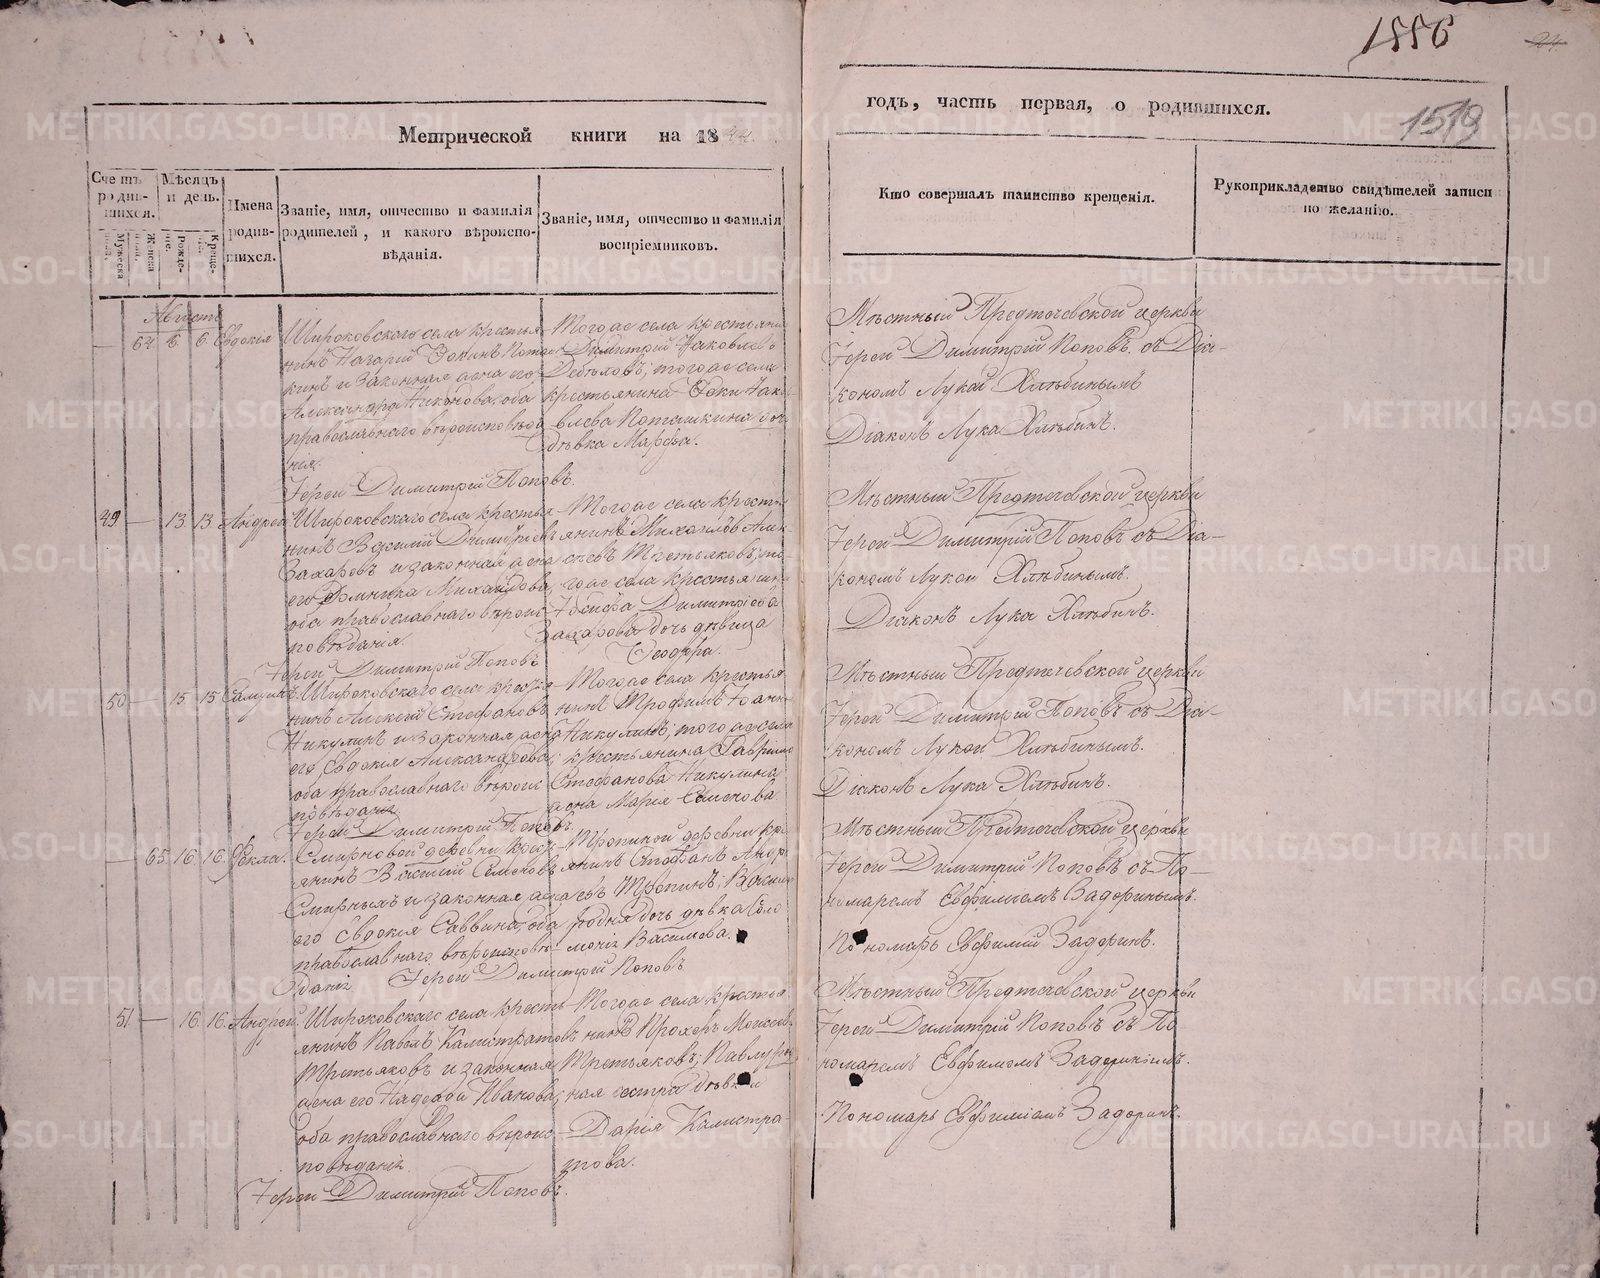 1556
Метрической книги на 18
годъ, часть первая, о родившихся.
1519
Счетъ родив-шихся.
Мѣсяцъ и день.
Имена родив-шихся.
Званіе, имя, отчество и фамилія родителей, и какого вѣроиспо-вѣданія.
Званіе, имя, отчество и фамилія воспріемниковъ.
Мужеска пола.
Женска пола.
Рожде-нія.
Креще-нія.
Кто совершалъ таинство крещенія.
Рукоприкладство свидѣтелей записи по желанію.
Августъ
64 6 6 Евдокія
Широковскаго села крестья-
нинъ
кинъ и законная жена его
Александра Никонова, оба
православнаго вѣроисповѣда
нія.
Іерей Димитрій Поповъ.
Тогоже села крестьяни
Димитрій Яковлевъ
тогоже села
крестьянина Яко
влева Поташкина доч
дѣвка Марѳа.
Мѣстный Предтечевской церкви
Іерей Димитрій Поповъ съ Діа-
кономъ Лукой Хлѣбинымъ
Діаконъ Лука Хлѣбинъ.
49 — 13 13 Андрей
Широковскаго села крестья
нинъ Василій Димитріевъ
Захаровъ и законная жена
его Домника Михайлова,
оба православнаго вѣроис
повѣданія.
Іерей Димитрій Поповъ
Тогоже села крестья
янинъ Михаилъ Алек
сѣевъ Третьяковъ; то-
гоже села крестьянина
Димитріева
Захарова дочь дѣвица
Мѣстный Предтечевской церкви
Іерей Димитрій Поповъ съ Діа-
кономъ Лукой Хлѣбинымъ.
Діаконъ Лука Хлѣбинъ.
50 — 15 15
Широковскаго села крестья
нинъ Алексѣй Стефановъ
Никулинъ и законная жена
его Евдокія Александрова,
оба православнаго вѣроис
повѣданія
Іерей Димитрій Поповъ.
Тогоже села крестья
нинъ Трофимъ Іоанно
Никулинъ; тогоже села
крестьянина Гавріила
Стефанова Никулина
жена Марія Семенова
Мѣстный Предтечевской церкви
Іерей Димитрій Поповъ съ Діа-
кономъ Лукой Хлѣбинымъ.
Діаконъ Лука Хлѣбинъ.
— 65 16 16 Ѳекла.
Смирновой деревни крест
янинъ Василій Семеновъ
Смирныхъ и законная жена
его Евдокія Саввина, оба
православнаго вѣроисповѣ
данія Іерей Димитрій Поповъ
Тропиной деревни кре
янинъ Стефанъ Андре
евъ Тропинъ;
родная дочь дѣвка Соло
монія Васильева.
Мѣстный Предтечевской церкви
Іерей Димитрій Поповъ съ По-
номаремъ Евфиміемъ Задоринымъ.
Пономарь Евфимій Задоринъ.
51 — 16 16 Андрей
Широковскаго села кресть
янинъ Павелъ Калистратовъ
Третьяковъ и законная
жена его Надежда Иванова,
оба православнаго вѣроис
повѣданія.
Іерей Димитрій Поповъ.
Тогоже села крестья
нинъ Прохоръ Моисеев
Третьяковъ; Павлу род
ная сестра дѣвка
Дарія Калистра-
това.
Мѣстный Предтечевской церкви
Іерей Димитрій Поповъ съ По
номаремъ Евфиміемъ Задоринымъ.
Пономарь Евфиміемъ Задоринъ.